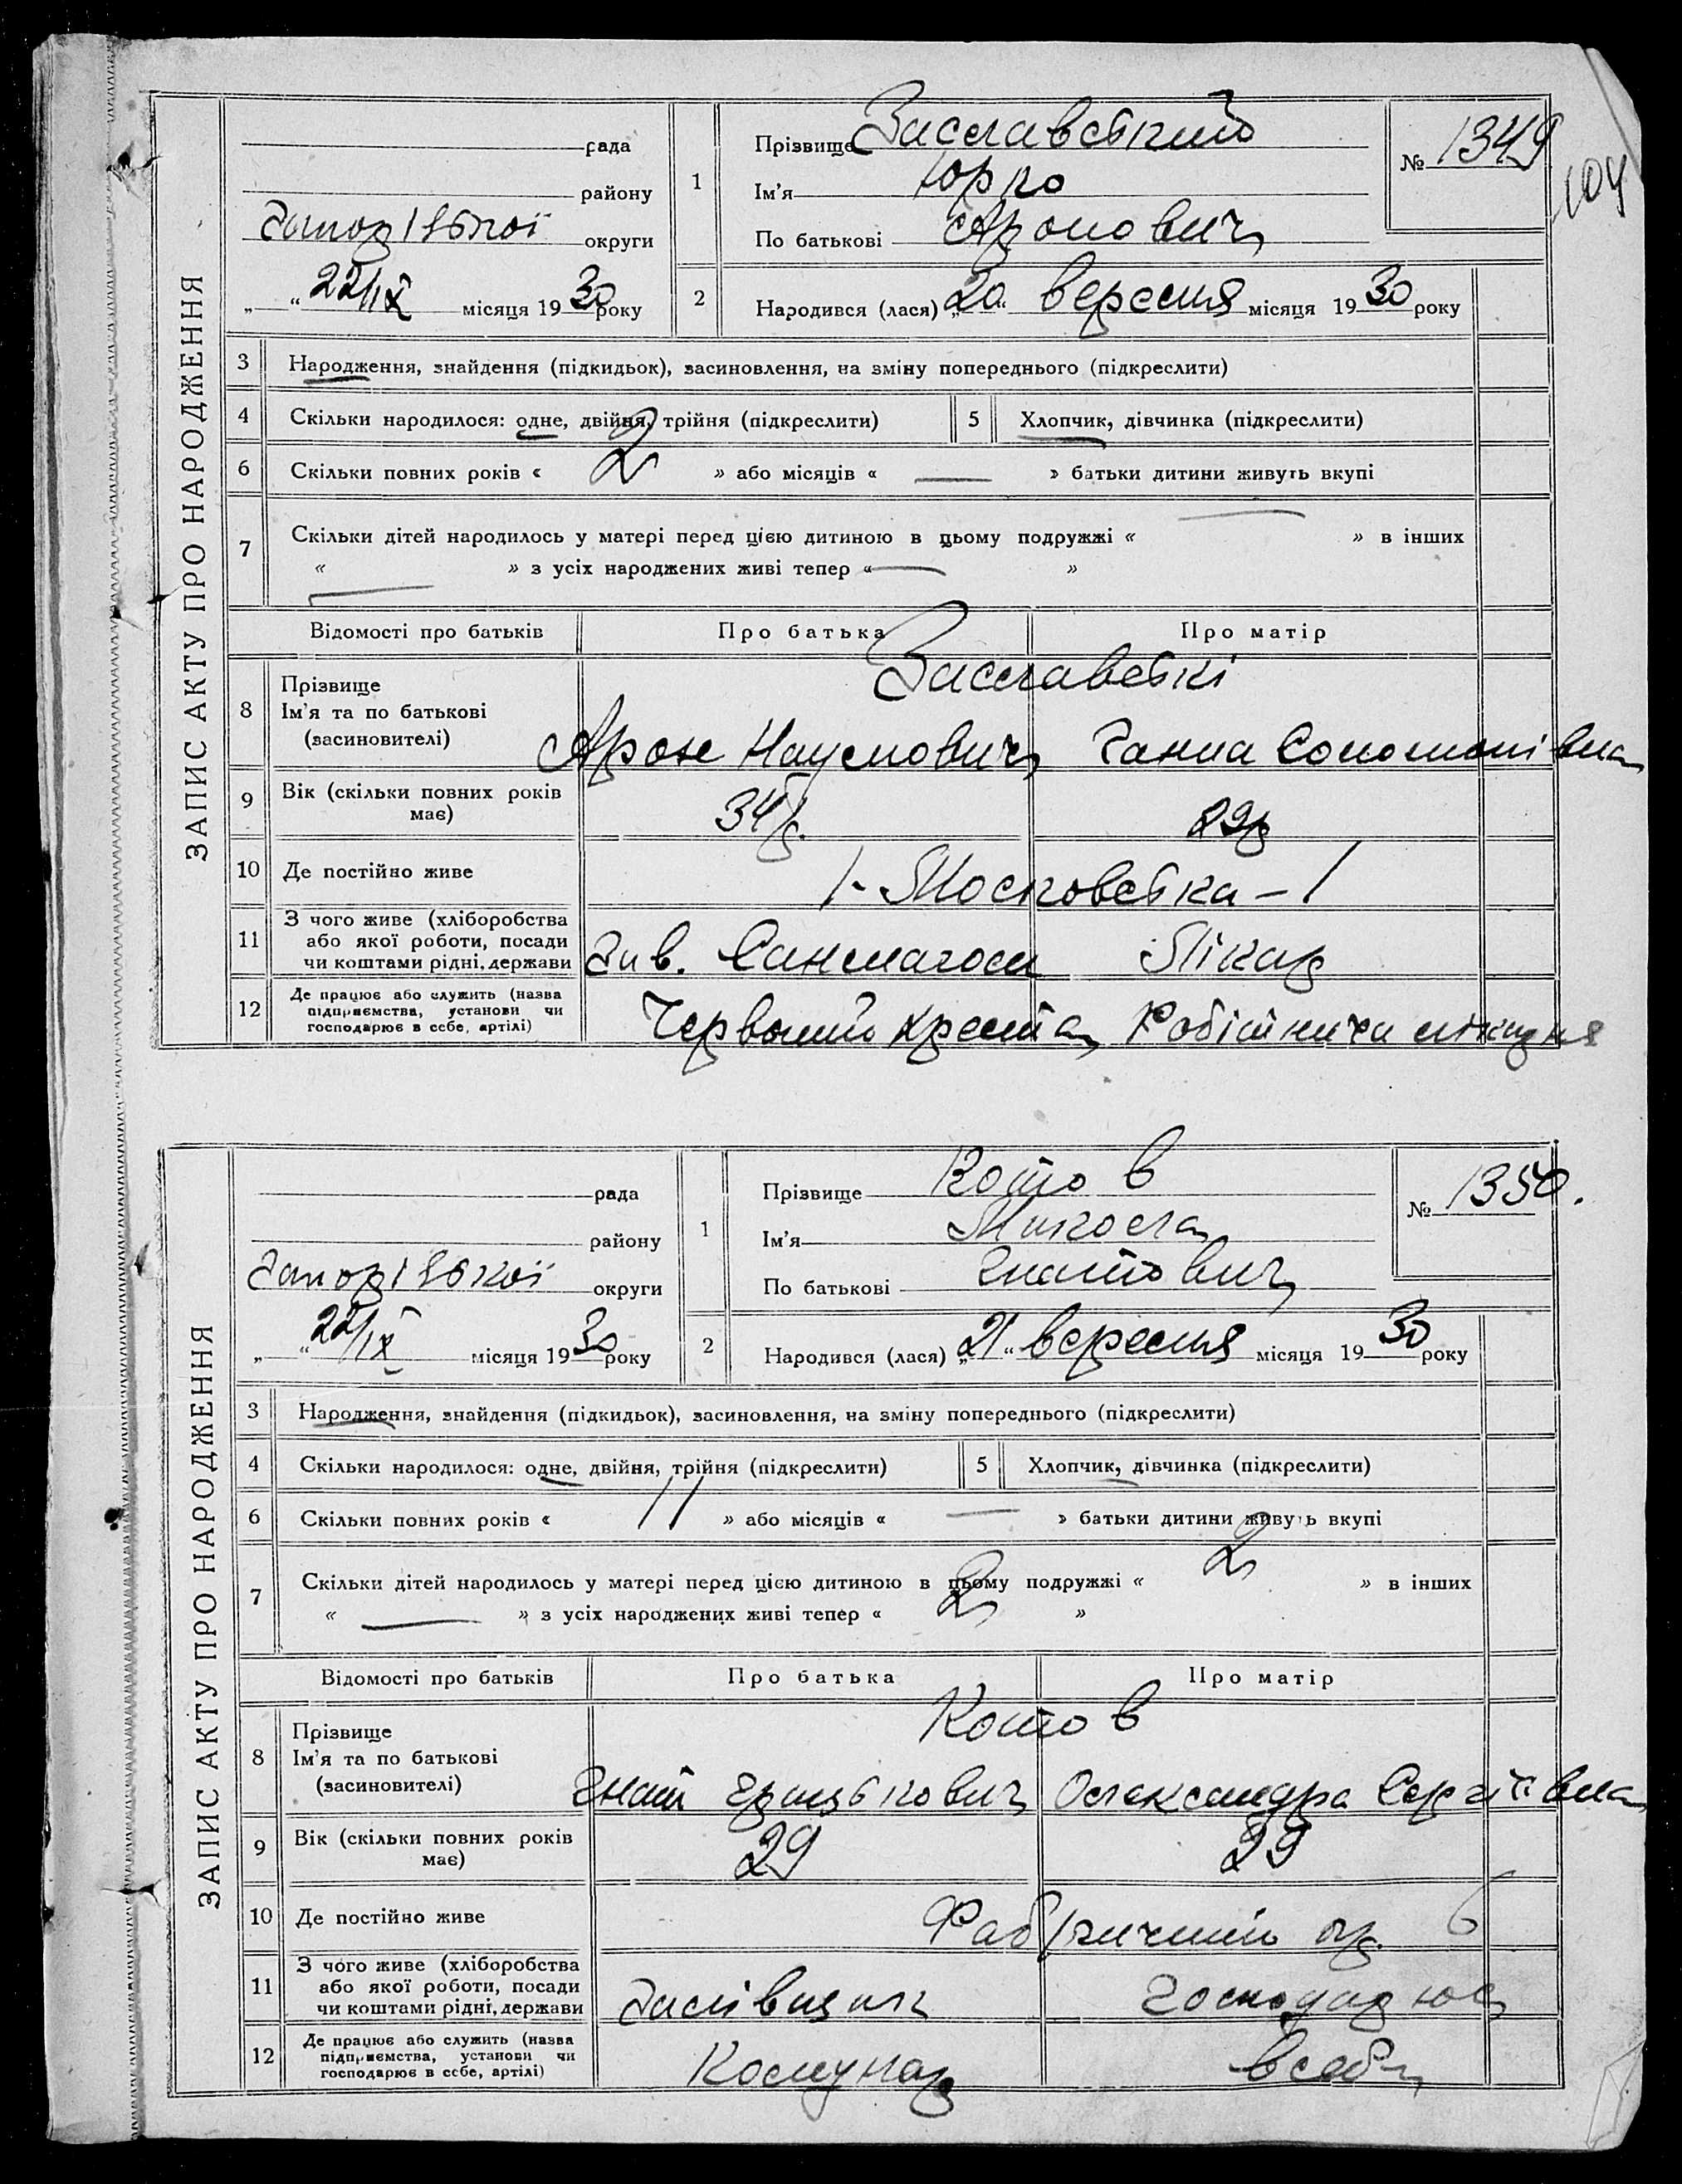 ЗАПИС АКТУ ПРО НАРОДЖЕННЯ
рада
району
Запорізької округи
„ “ 22/IX місяця 1930 року
1 Прізвище Заславський
Ім'я Юрко
По батькові Аронович
№ 1349
104
2 Народився (лася) „20“ вересня місяця 1930 року
3 Народження, знайдення (підкидьок), засиновлення, на зміну попереднього (підкреслити)
4 Скільки народилося: одне, двійня, трійня (підкреслити) 5 Хлопчик, дівчинка (підкреслити)
6 Скільки повних років « 2 » або місяців « — » батьки дитини живуть вкупі
7 Скільки дітей народилось у матері перед цією дитиною в цьому подружжі « — » в інших
« — » з усіх народжених живі тепер « — »
Відомості про батьків Про батька Про матір
8 Прізвище Заславські
Ім'я та по батькові
(засновителі) Арон Наумович Ганна Соломонівна
9 Вік (скільки повних років має) 34 р. 29 р
10 Де постійно живе 1. Московська – 1
11 З чого живе (хліборобства або якої роботи, посади чи коштами рідні, держави Зав. Санмагом Лікар
12 Де працює або служить (назва підприємства, установи чи господарює в себе, артілі) Червоний хреста Робітнича лікарня
ЗАПИС АКТУ ПРО НАРОДЖЕННЯ
рада
району
Запорізької округи
„ “ 22/IX місяця 1930 року
1 Прізвище Котов
Ім'я Микола
По батькові Гнатович
№ 1350.
2 Народився (лася) „21“ вересня місяця 1930 року
3 Народження, знайдення (підкидьок), засиновлення, на зміну попереднього (підкреслити)
4 Скільки народилося: одне, двійня, трійня (підкреслити) 5 Хлопчик, дівчинка (підкреслити)
6 Скільки повних років « 11 » або місяців « — » батьки дитини живуть вкупі
7 Скільки дітей народилось у матері перед цією дитиною в цьому подружжі « 2 » в інших
« — » з усіх народжених живі тепер « 2 »
Відомості про батьків Про батька Про матір
8 Прізвище Котов
Ім'я та по батькові
(засиновителі) Гнат Грицькович Олександра Сергіївна
9 Вік (скільки повних років має) 29 29
10 Де постійно живе Фабричний 6
11 З чого живе (хліборобства або якої роботи, посади чи коштами рідні, держави Господарює
12 Де працює або служить (назва підприємства, установи чи господарює в себе, артілі) Комунар в себе